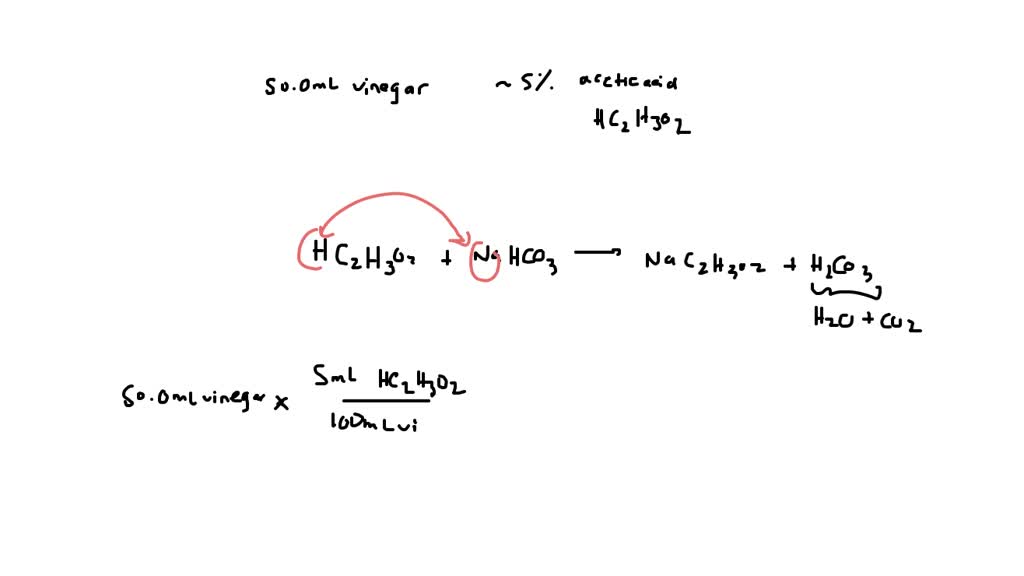 50.0mL vinegar ~ 5% acetic acid
HC2H3O2
HC2H3O2 + NaHCO3 → NaC2H3O2 + H2CO3
H2O + CO2
50.0mL vinegar x 5mL HC2H3O2
100mL vi